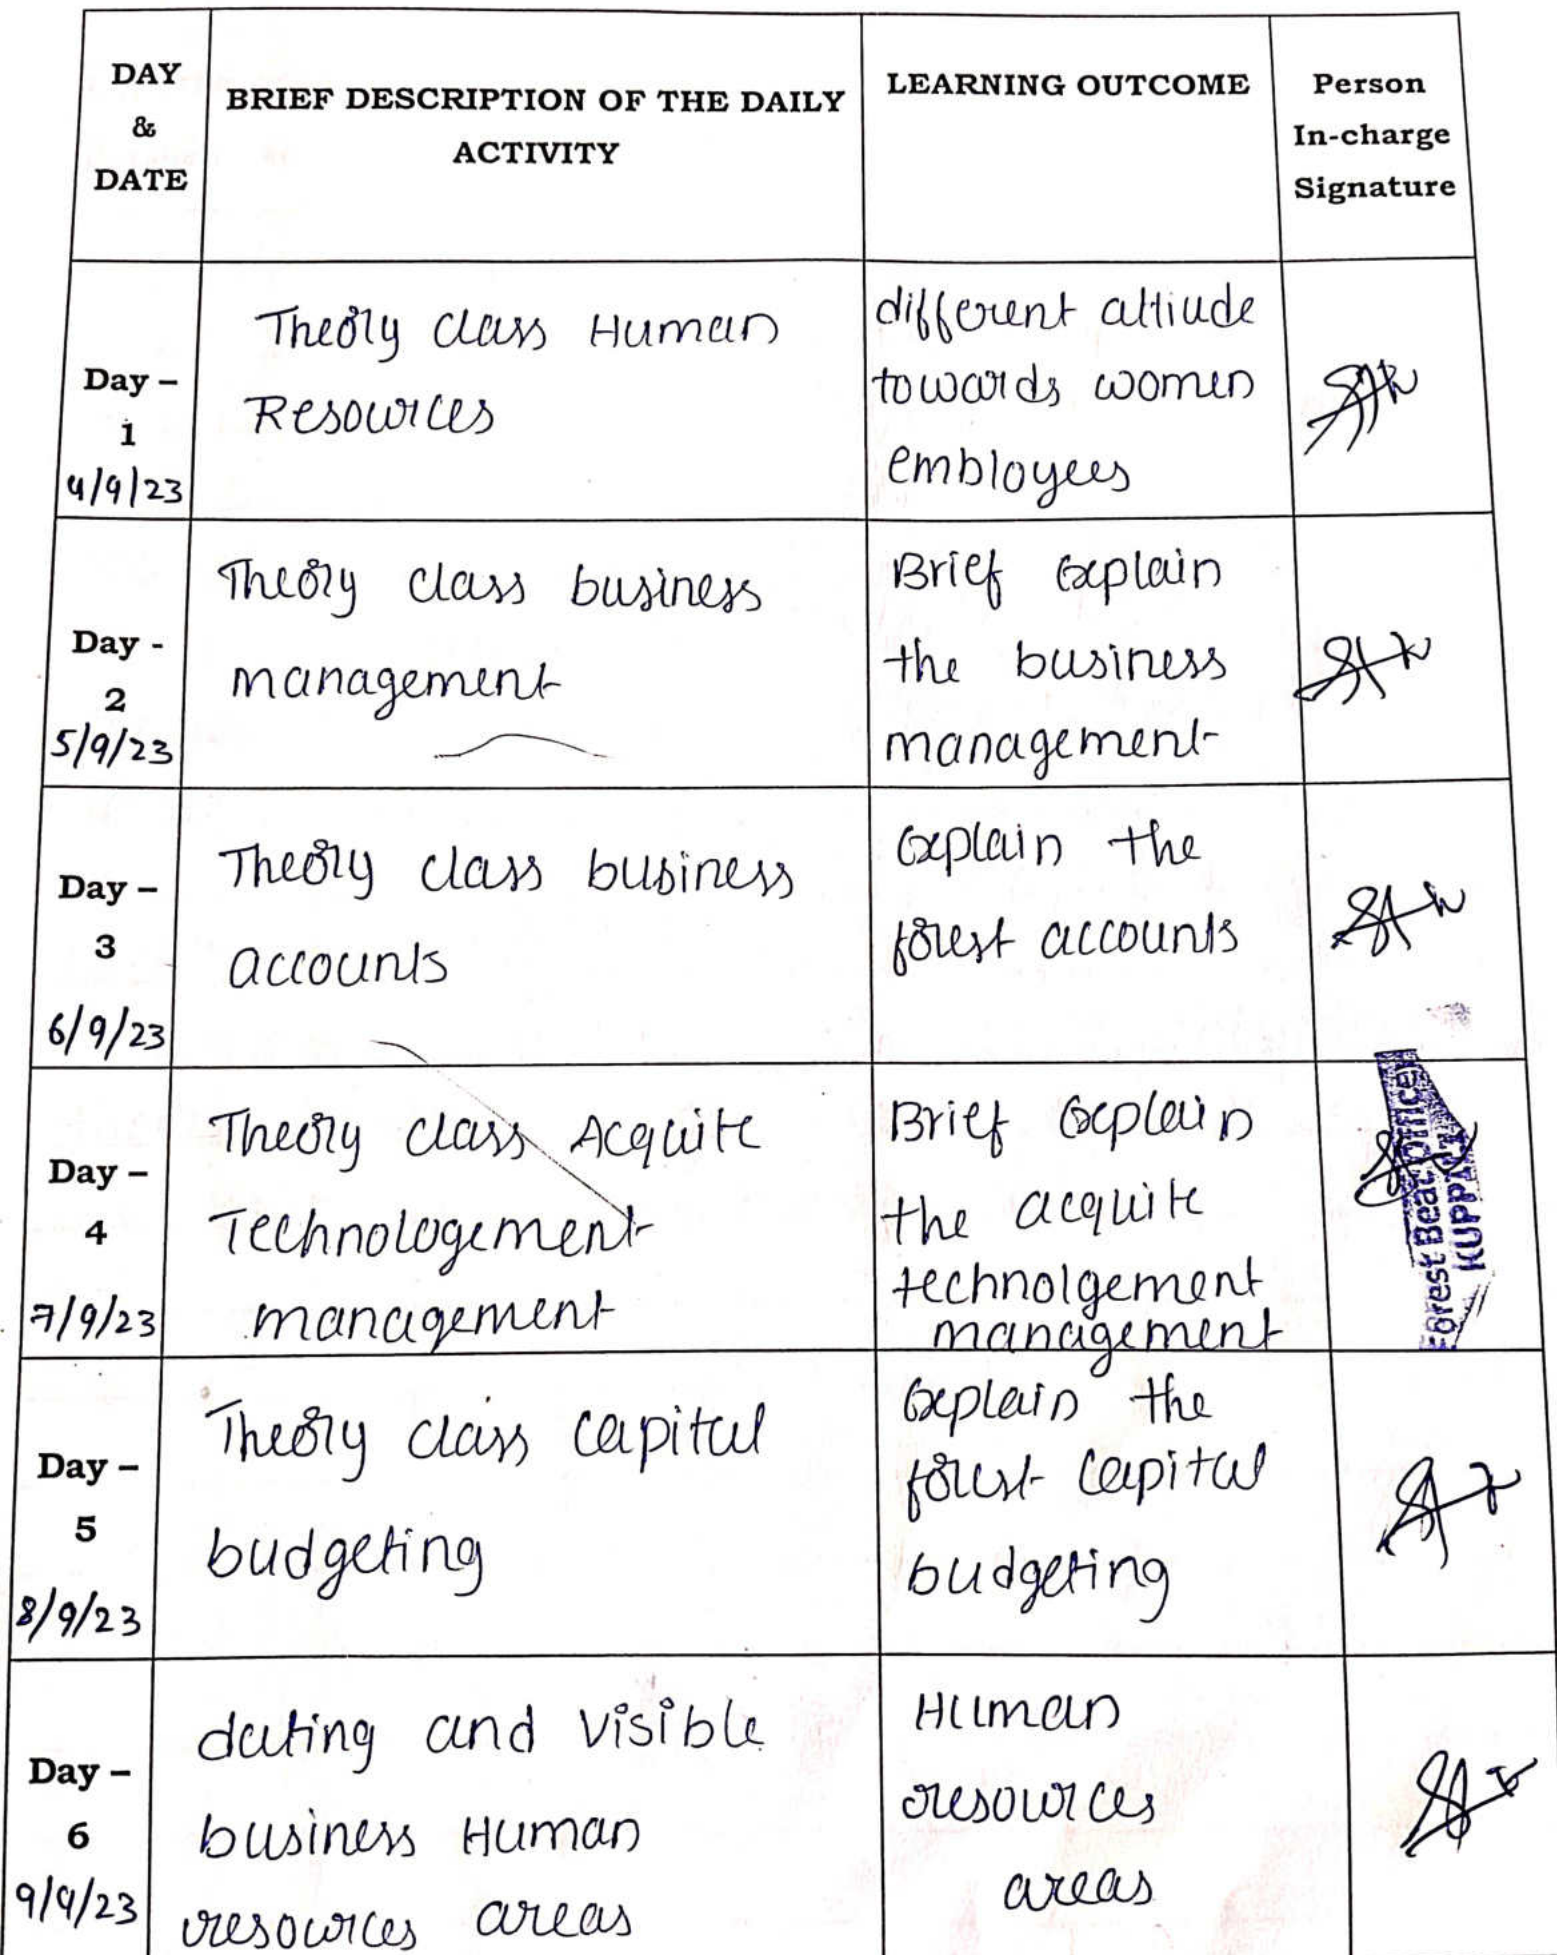 DAY
&
DATE
BRIEF DESCRIPTION OF THE DAILY
ACTIVITY
LEARNING OUTCOME
Person
In-charge
Signature
Day –
1
4/9/23
Theory class Human
Resources
different attiude
towards women
embloyees
Day -
2
5/9/23
Theory class business
management
Brief Explain
the business
management
Day –
3
6/9/23
Theory class business
accounts
Explain the
forest accounts
Day –
4
7/9/23
Theory class Acquite
Technologement
management
Brief Explain
the acquite
technolgement
management
Forest Beat Officer
KUPPAM
Day –
5
8/9/23
Theory class capital
budgeting
Explain the
forest capital
budgeting
Day –
6
9/9/23
dating and visible
business Human
resources areas
Human
resources
areas